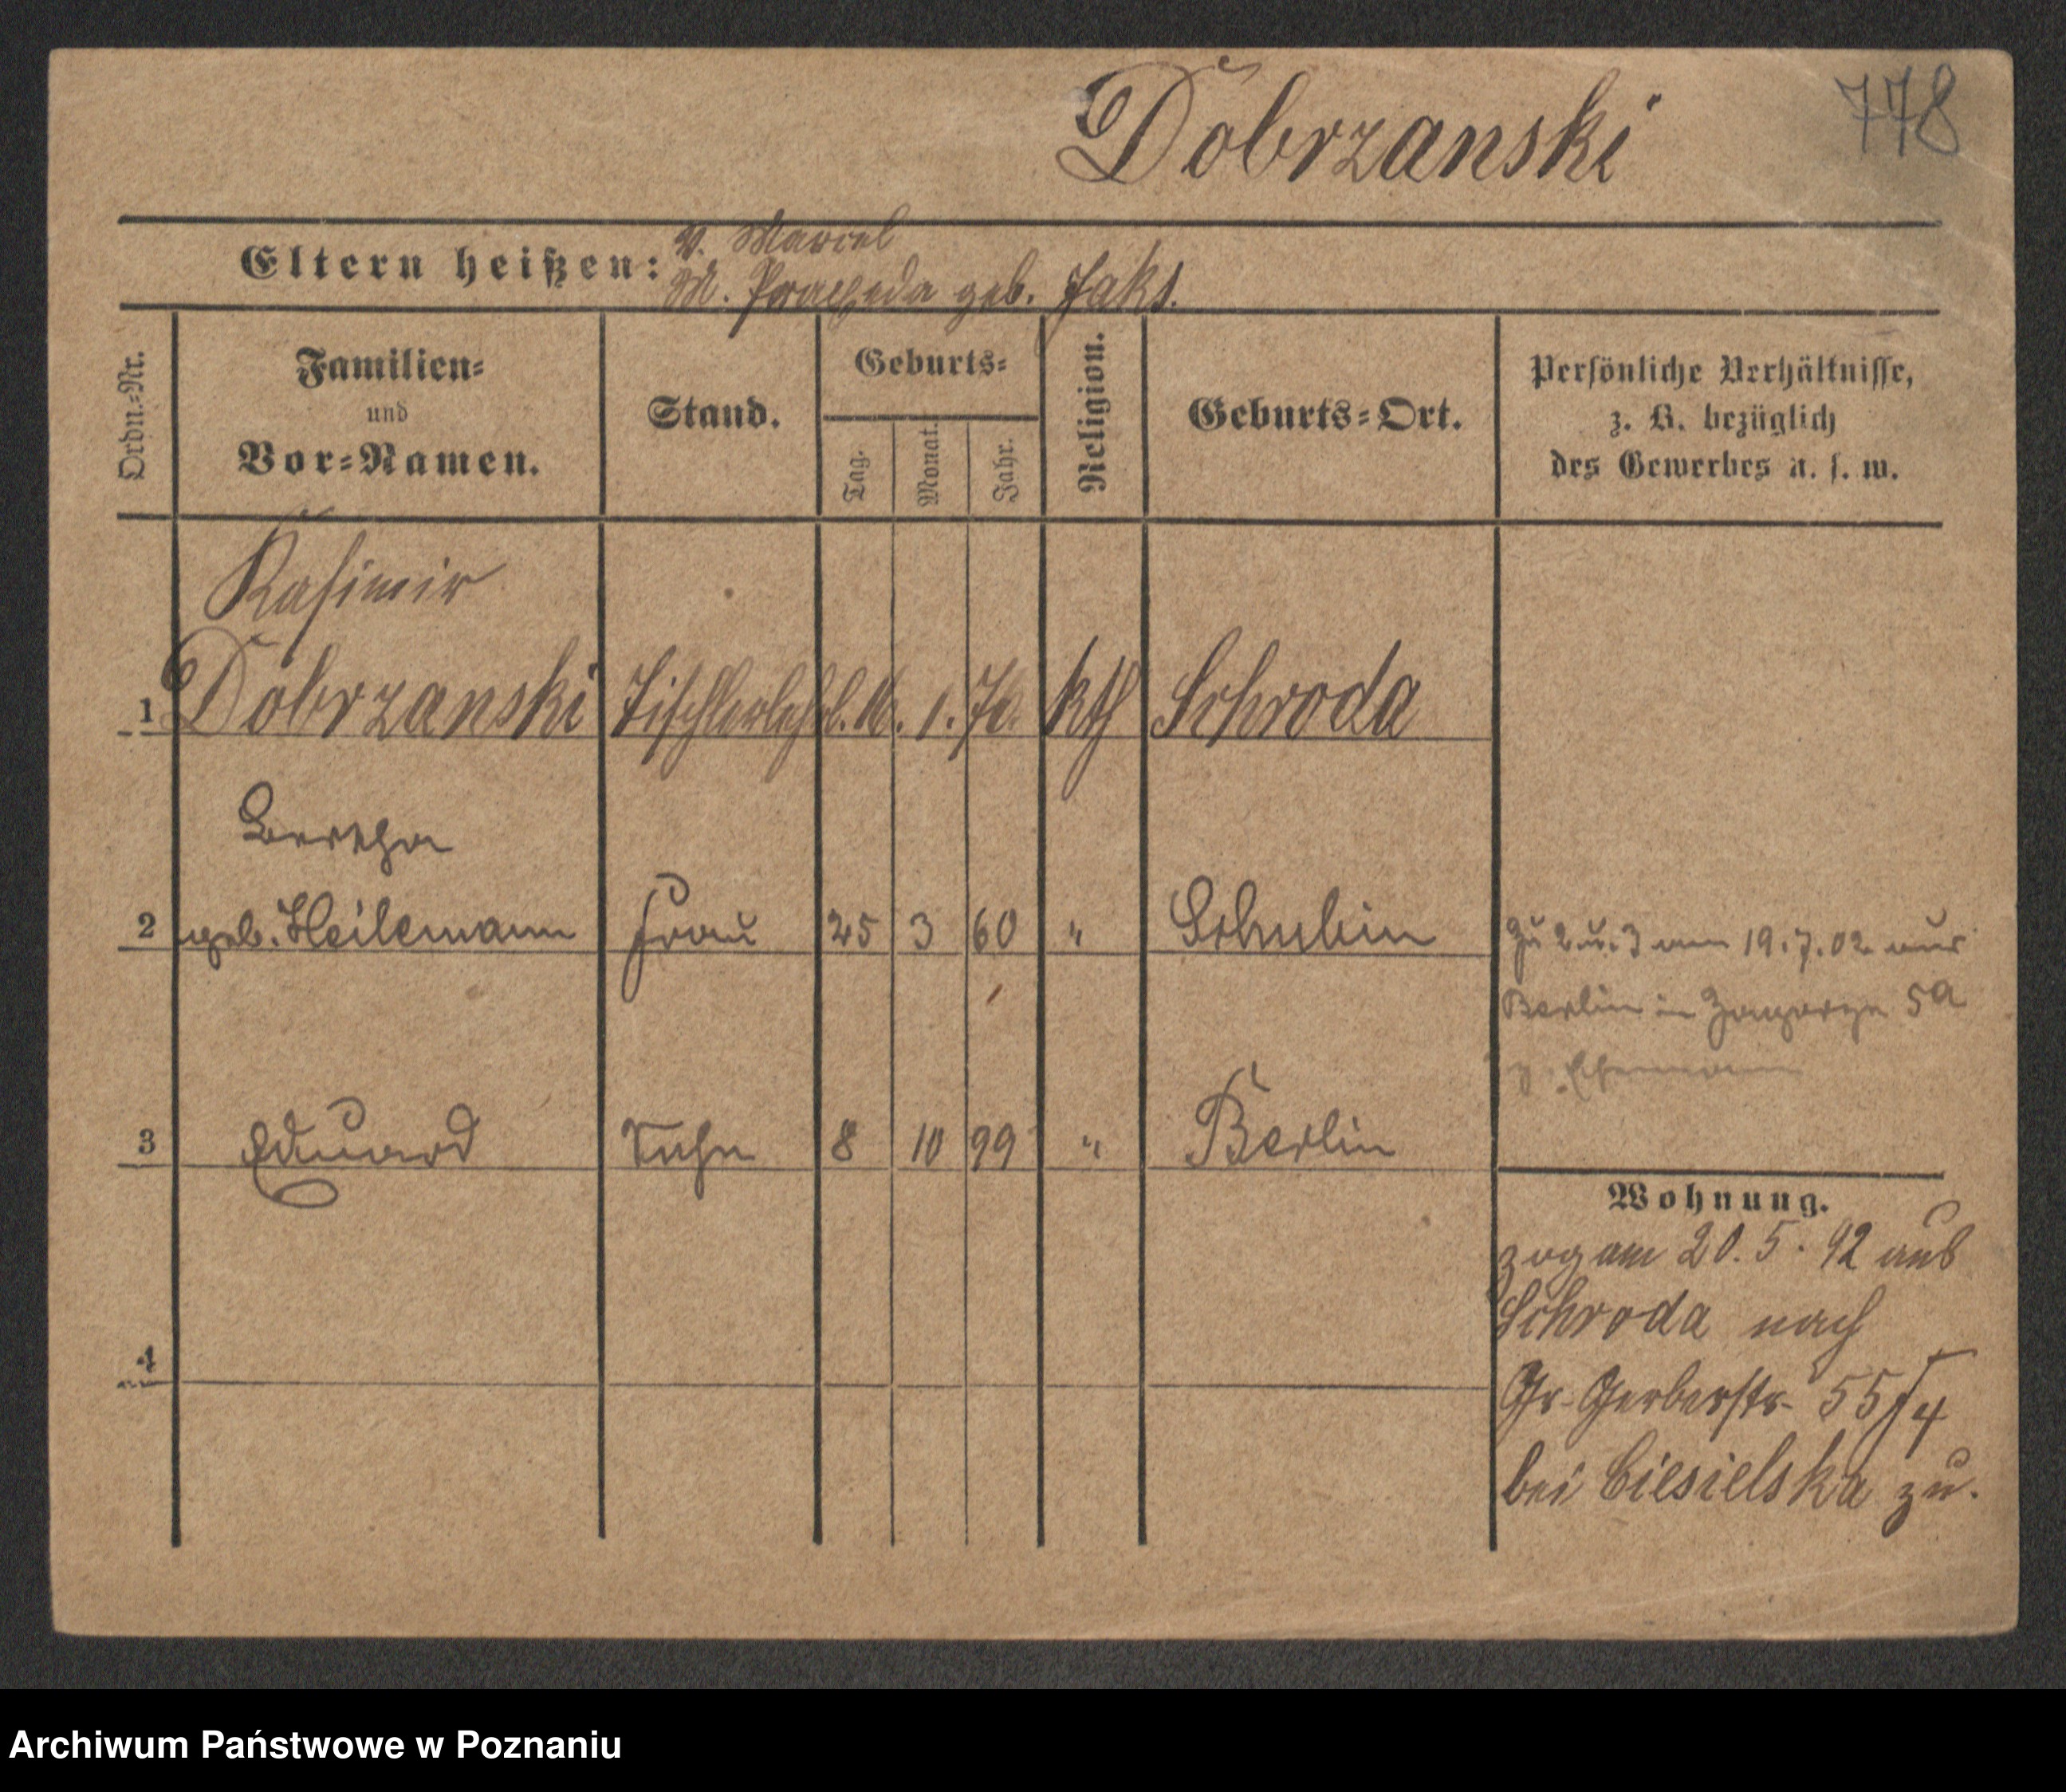 Dobrzanski
778
Eltern heißen:
V. Marcel
M. Praxeda geb. Jaks.
Ordn.-Nr.
Familien-
und
Vor-Namen.
Stand.
Geburts-
Tag.
Monat.
Jahr.
Religion.
Geburts-Ort.
Persönliche Verhältnisse,
z. B. bezüglich
des Gewerbes u. s. w.
Kasimir
1 Dobrzanski Tischlerlehrl. 1. kth Schroda
Bertha
2 geb. Heilemann Frau 25 3 60 " Schubin
Zu 2 u. 3 am 19.7.02 aus
Berlin in Zagorze 5a
z. Ehemann
3 Eduard Sohn 8 10 99 " Berlin
Wohnung.
zog am 20. 5. 92 aus
Schroda nach
4
Gr. Gerberstr. 55/4
bei Ciesielska zu.
Archiwum Państwowe w Poznaniu